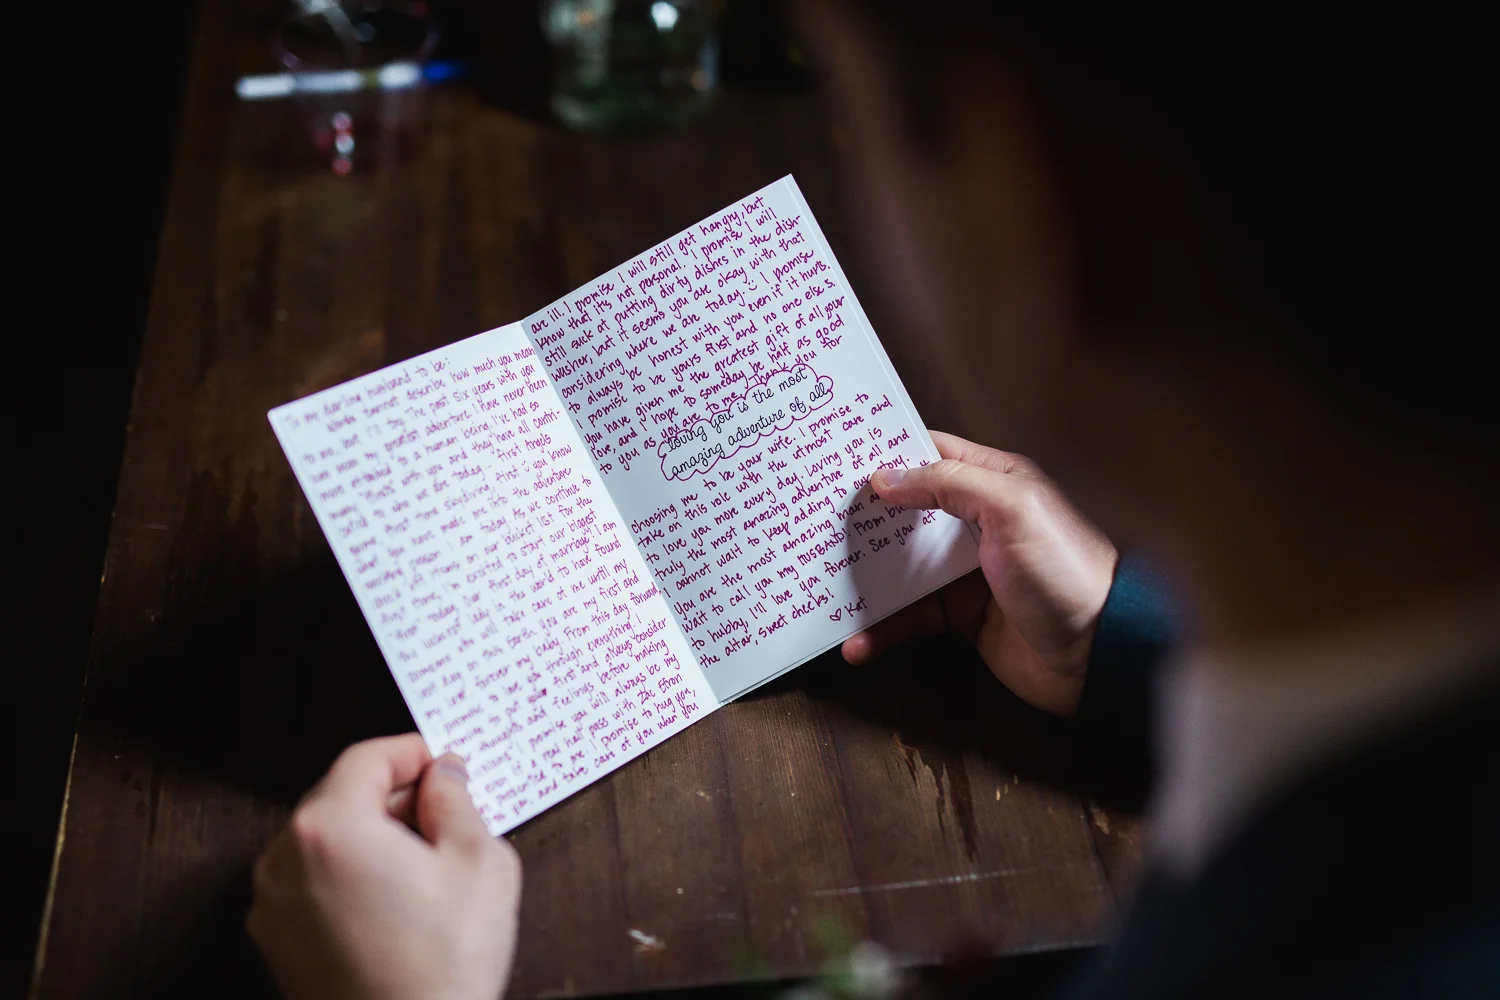 To my darling husband to be:
Words cannot describe how much you mean
to me, but I'll try. The past six years with you
have been my greatest adventure. I have never been
more attached to a human being. I've had so
many "firsts" with you and they have all contri-
buted to who we are today - first Angels
game, first time skydiving, first :) you know
what! You have made me into the adventure
seeking person I am today. As we continue to
check off items on our bucket list for the
"first" today, our first day of marriage! I am
the luckiest lady in the world to have found
someone who will take care of me until my
last day on this earth. You are my first and
my last, forever my baby. From this day forward,
I promise to love you through everything. I
promise to put you first and always consider
your thoughts and feelings before making
"I promise you will always be my
even if a real hall pass with Zac Efron
is presented to me. I promise to hug you,
and take care of you when you
are ill. I promise I will still get hangry, but
know that it's not personal. I promise I will
still suck at putting dirty dishes in the dish-
washer, but it seems you are okay with that
considering where we are today. :) I promise
to always be honest with you even if it hurts.
I promise to be yours first and no one else's.
You have given me the greatest gift of all, your
love, and I hope to someday be half as good
to you as you are to me. Thank you for
loving you is the most
amazing adventure of all
choosing me to be your wife. I promise to
take on this role with the utmost care and
to love you more every day. Loving you is
truly the most amazing adventure of all and
I cannot wait to keep adding to our story.
You are the most amazing man
wait to call you my HUSBAND! From
to hubby, I'll love you forever. See you at
the altar, sweet cheeks!
♡ Kat